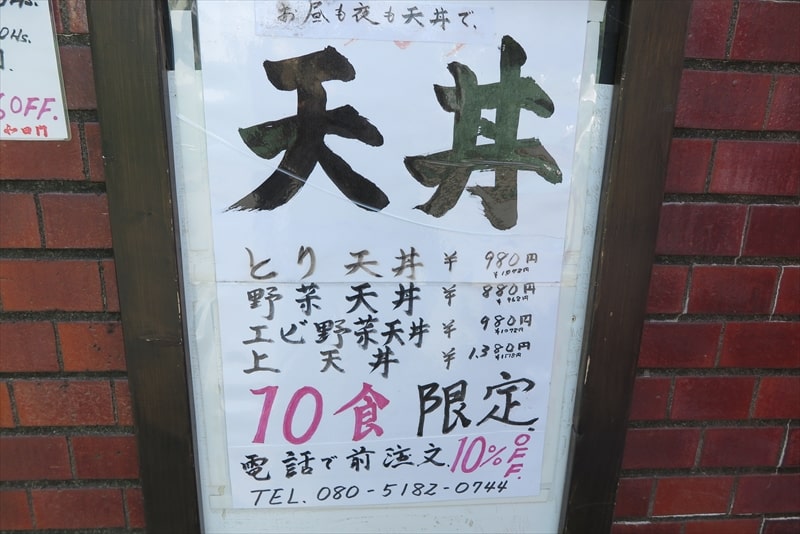 お昼も夜も天丼で、
天丼
とり天丼 ¥980円
¥1078円
野菜天丼 ¥880円
¥968円
エビ野菜天丼 ¥980円
¥1078円
上天丼 ¥1.380円
10食限定.
電話で前注文.10%OFF
TEL. 080-5182-0744
OFF.